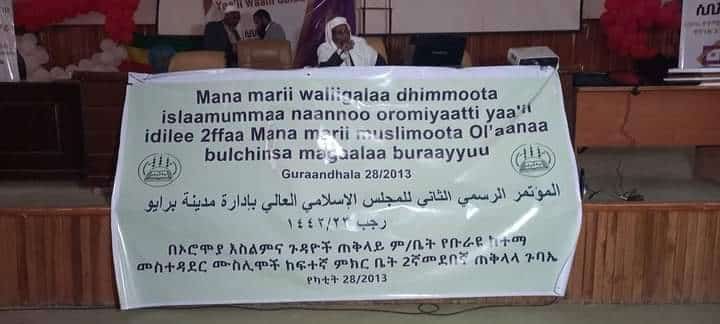 Yaa'ii Waliin Galaa
Mana marii waliigalaa dhimmoota
islaamummaa naannoo oromiyaatti yaa'ii
idilee 2ffaa Mana marii muslimoota Ol'aanaa
bulchinsa magaalaa buraayyuu
Guraandhala 28/2013
المؤتمر الرسمي الثاني للمجلس الإسلامي العالي بإدارة مدينة برايو
رجب ١٤٤٢/٢٣
በኦሮሞያ እስልምና ጉዳዮች ጠቅላይ ም/ቤት የቡራዩ ከተማ
መስተዳደር ሙስሊሞች ከፍተኛ ምክር ቤት 2ኛመደበኛ ጠቅላላ ጉባኤ
የካቲት 28/2013